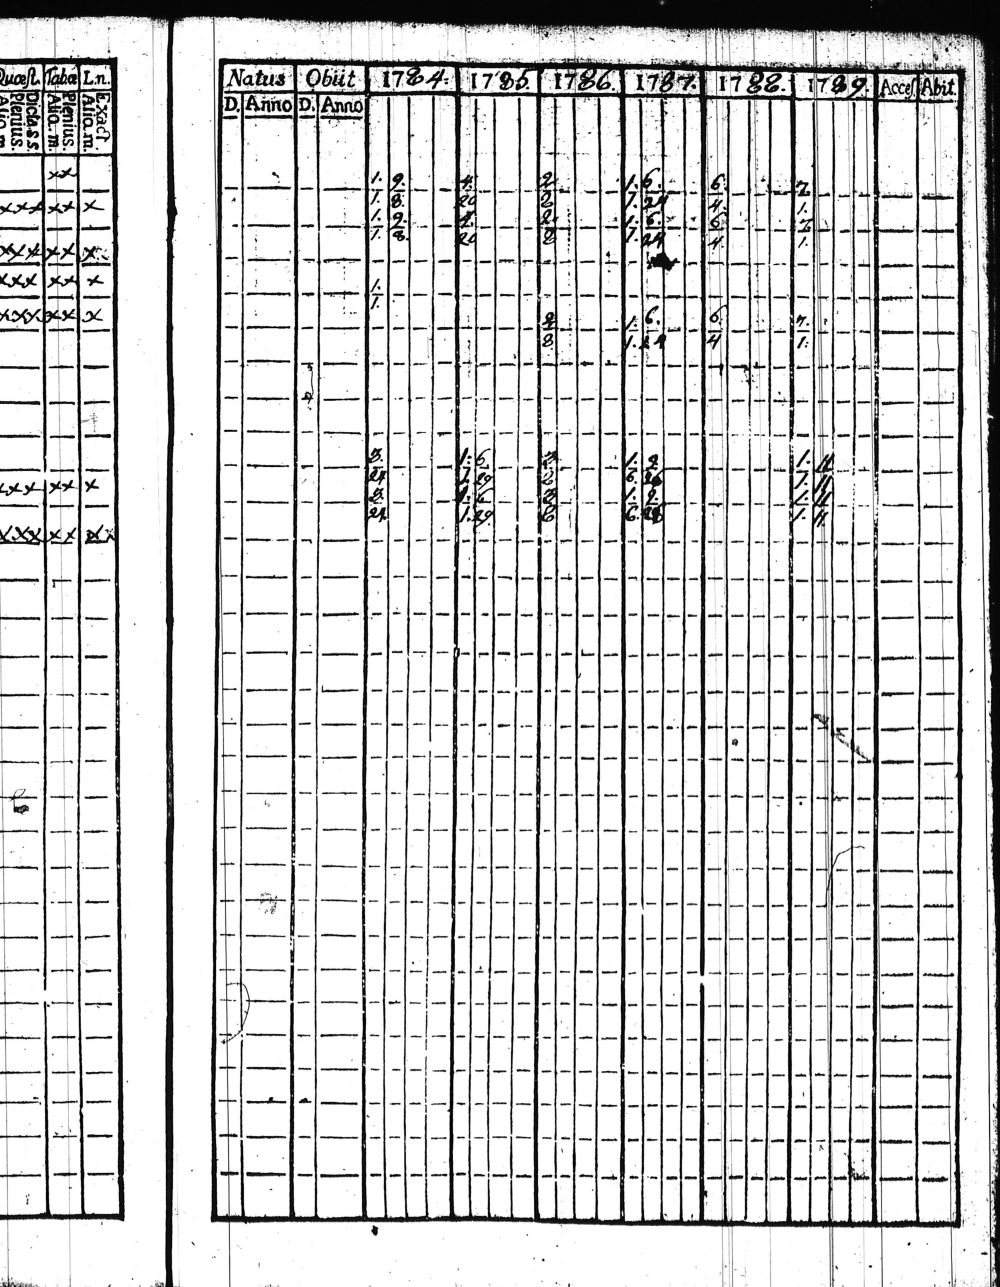 Quæst. Tabæ L.n.
Dicta s.s. Plenius. Alio m. Plenius. Alio. m. Exact. Alio. m.
x x
x x x x x x
x x x x x x
x x x x x x
x x x x x x
x x x x x x
x x x x x x
Natus Obiit 1784. 1785. 1786. 1787. 1788. 1789. Access Abit.
D. Anno D. Anno
1. 9. 4. 2 1. 6. 6. 7.
1. 8. 20 8 1. 24 4. 1.
1. 9. 4. 2. 1. 6. 6 7.
1. 8. 20 8 1. 24 4. 1.
1.
1.
2 1. 6. 6. 7.
8. 1. 24 4 1.
3. 1. 6 3 1. 9 1. 11
24 1. 29 6 6. 28 1. 11
3. 1. 6 3 1. 9. 1. 11
24. 1. 29. 6 6. 28 1. 11.